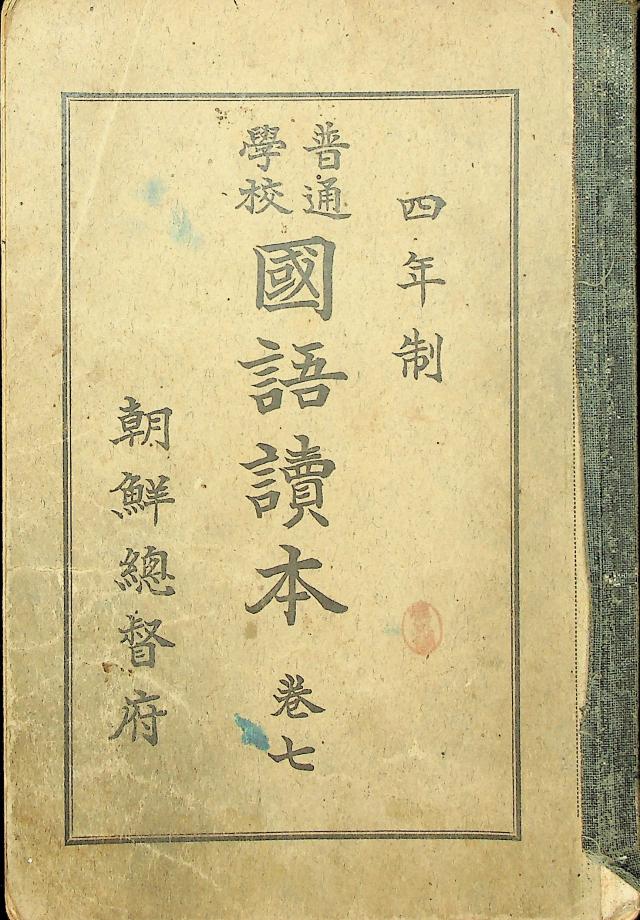 四年制
普通
學校
國語讀本 卷七
朝鮮總督府